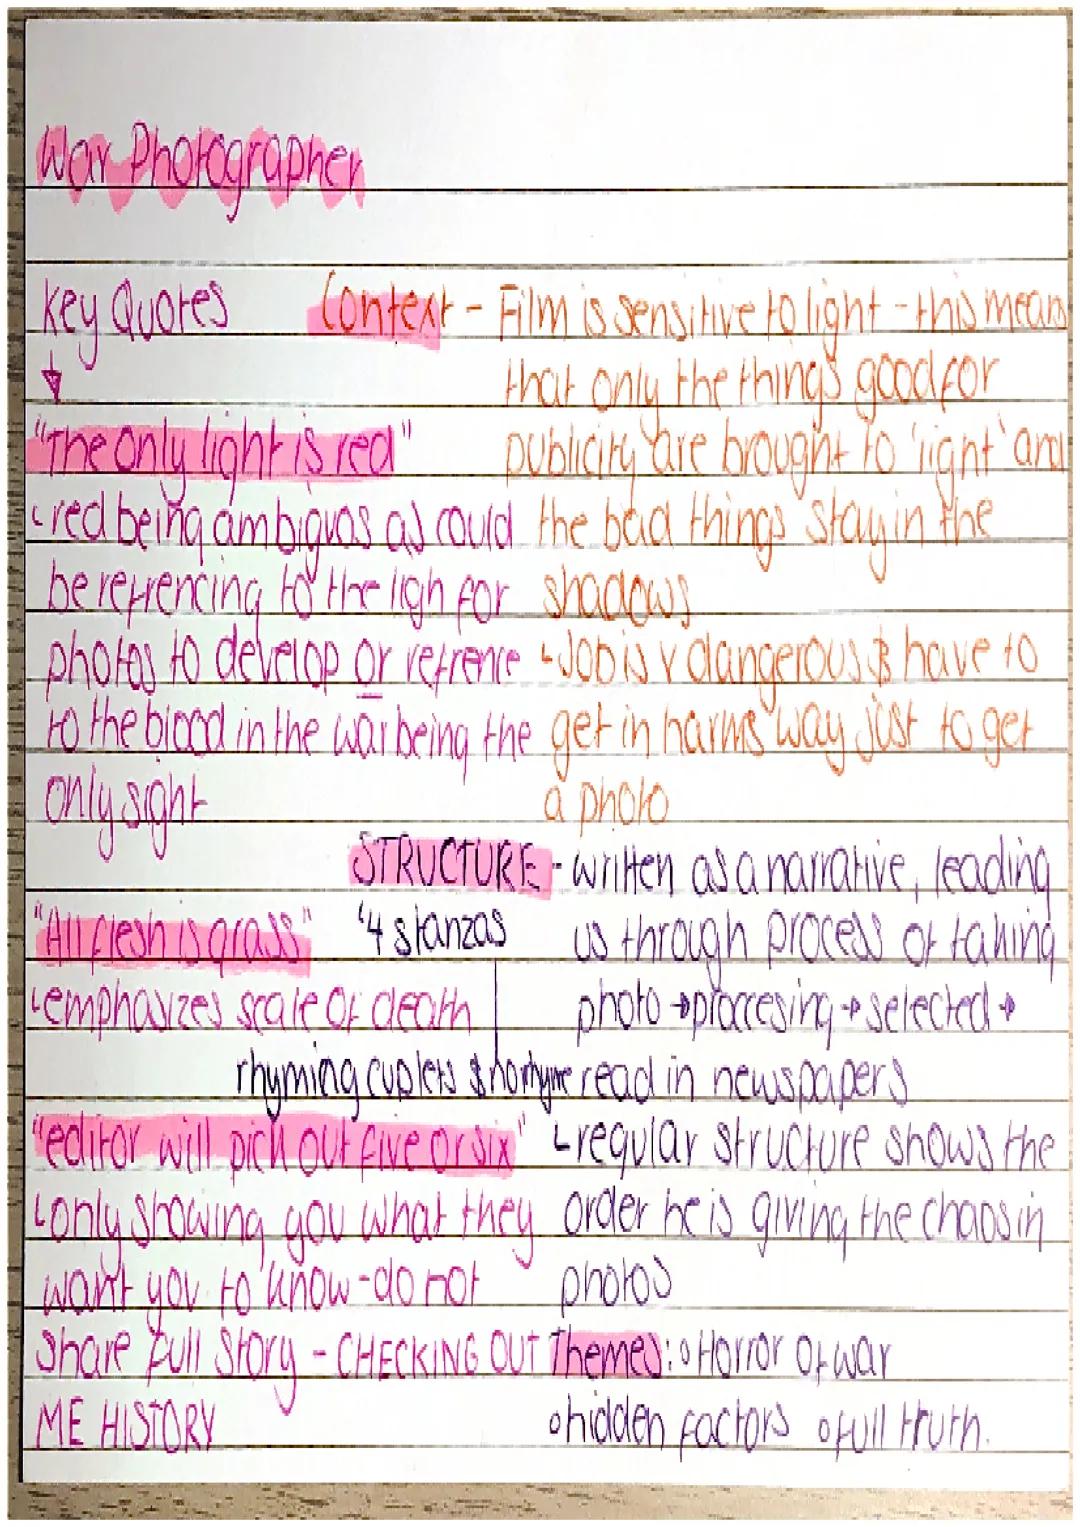 War Photographer
Key Quotes
"The only light is red"
red being ambiguos as could
be refrencing to the ligh for
photos to develop or refrence
to the blood in the war being the
only sight
"All flesh is grass"
emphasizes scale of death
"editor will pick out five or six"
only showing you what they
want you to know - do not
share full story - CHECKING OUT
ME HISTORY
Context - Film is sensitive to light - this means
that only the things good for
publicity are brought to 'light' and
the bad things stay in the
shadows
Job is v dangerous & have to
get in harms way just to get
a photo
STRUCTURE - written as a narrative, leading
us through process of taking
photo → proccesing → selected →
read in newspapers
4 stanzas
rhyming cuplets
regular structure shows the
order he is giving the chaos in
photos
Themes: Horror of war
hidden factors full truth.